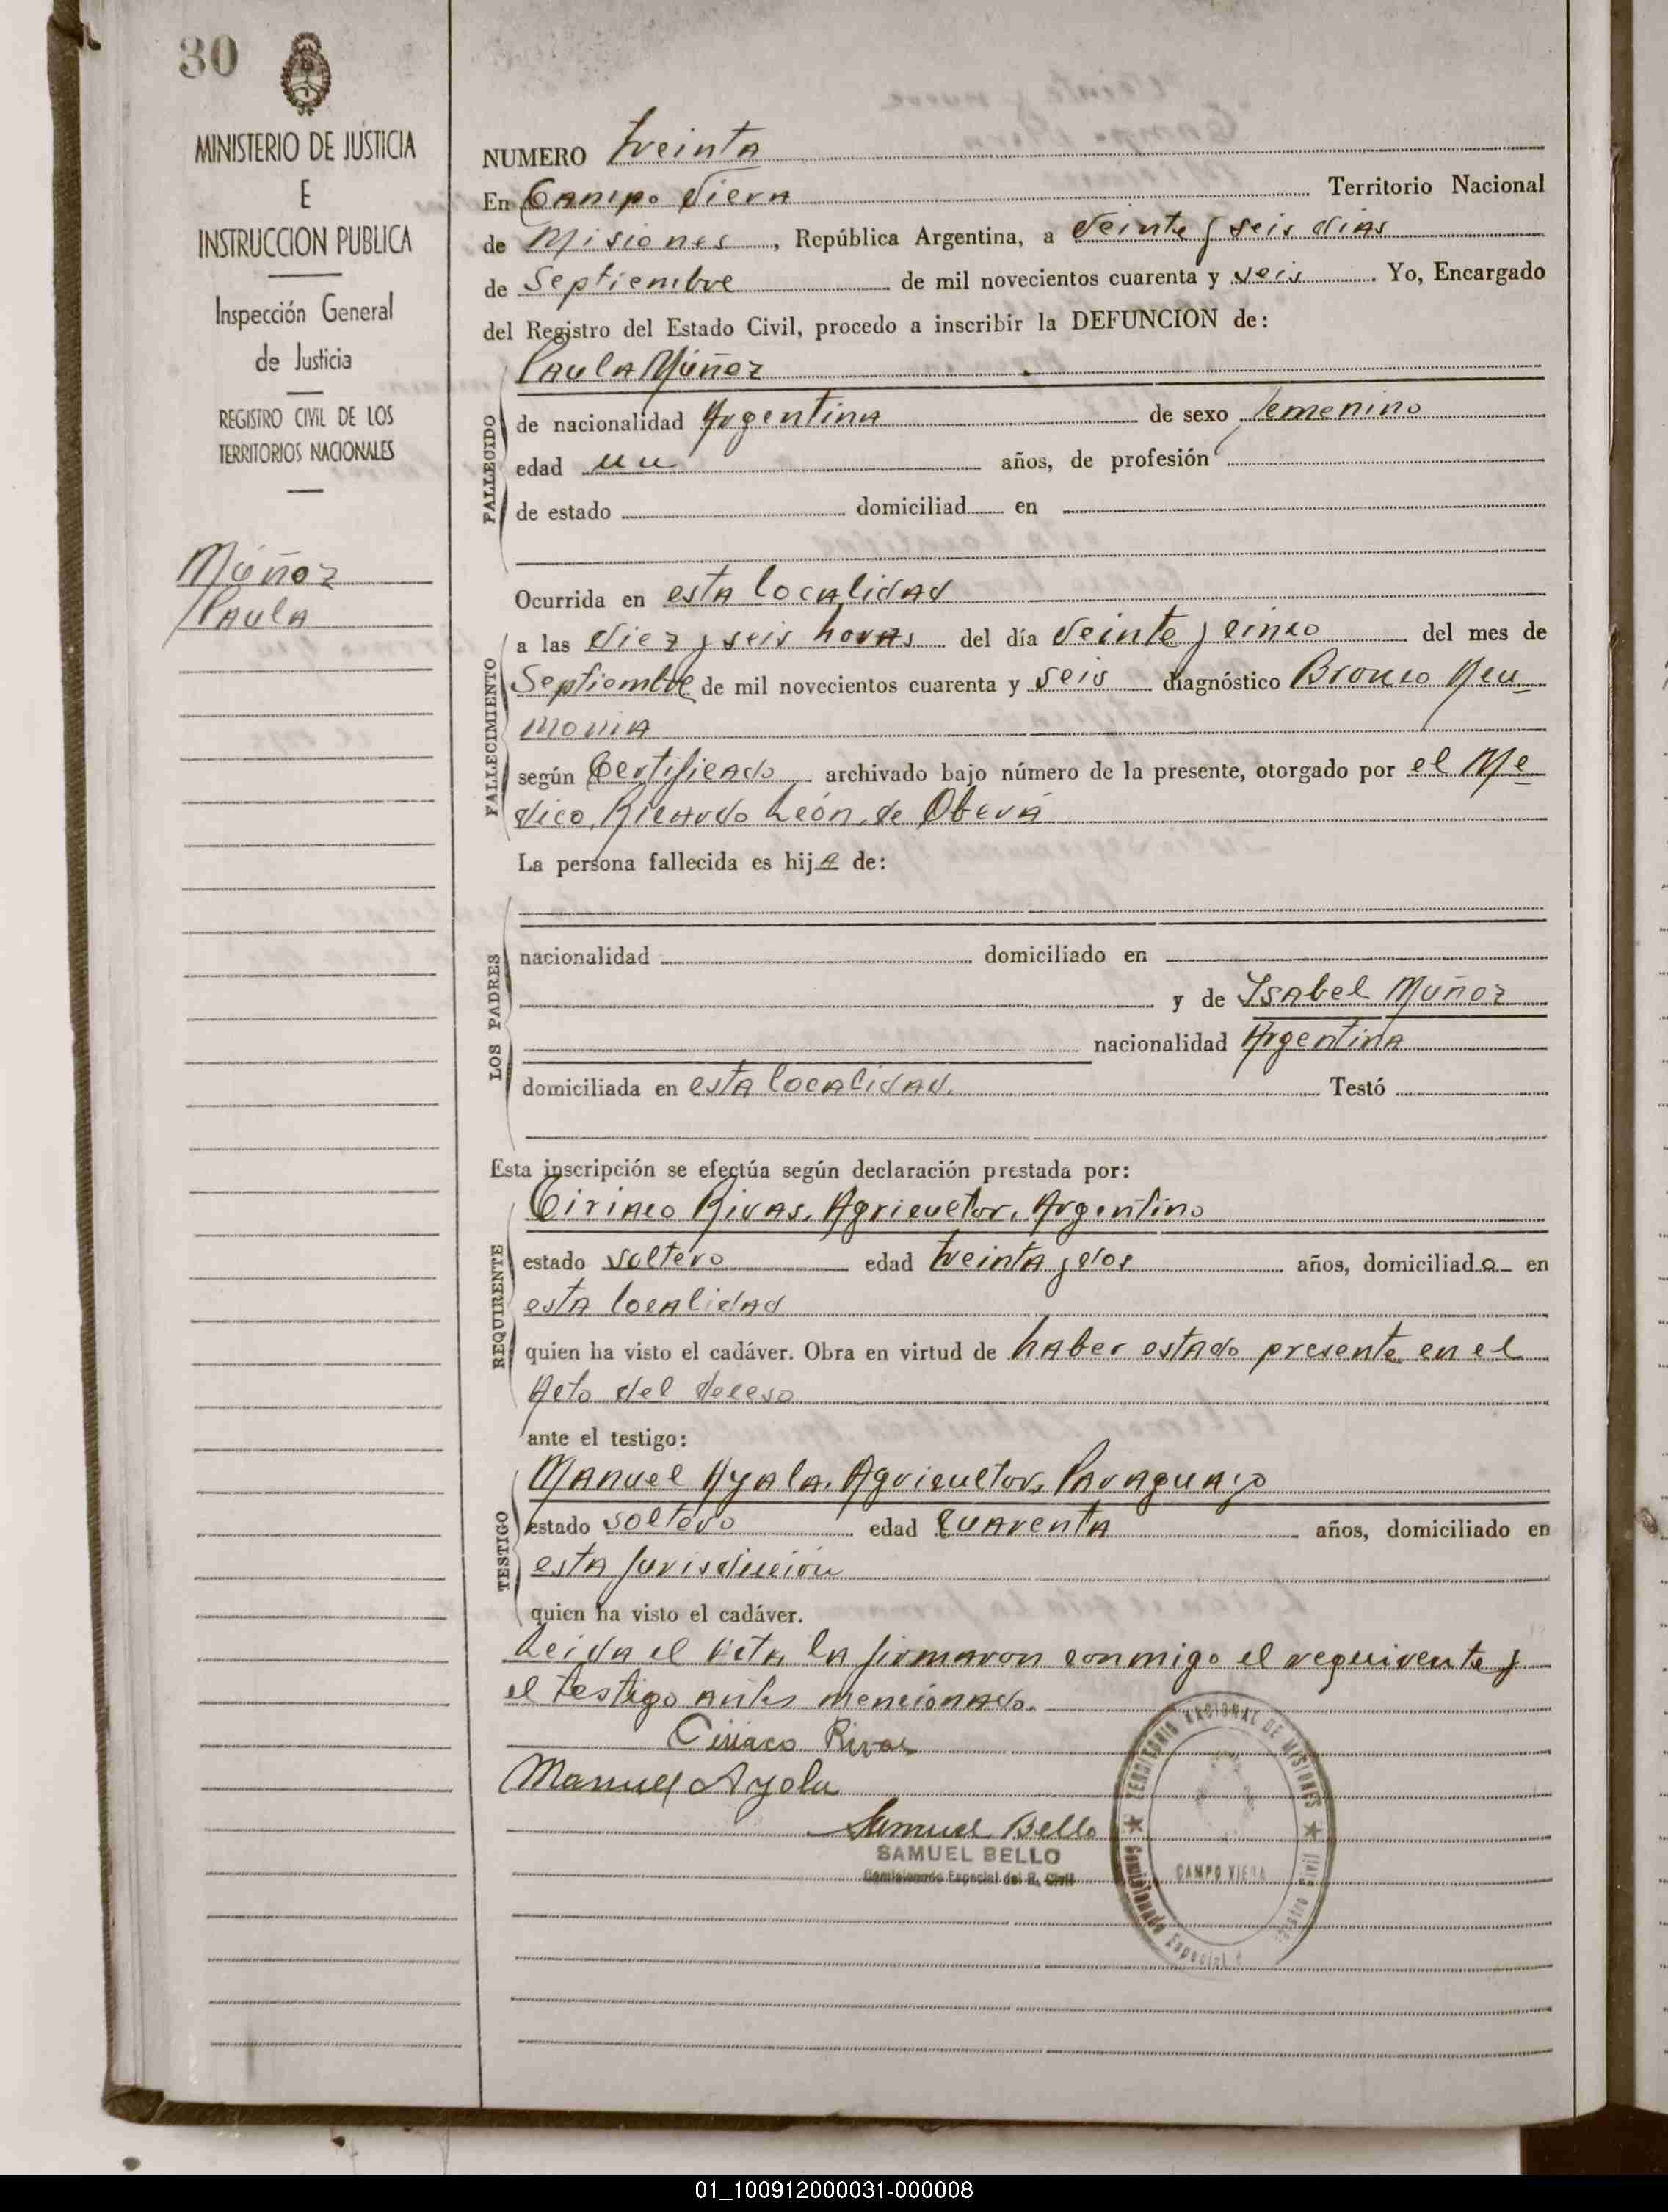 30
MINISTERIO DE JUSTICIA
E
INSTRUCCION PUBLICA
Inspección General
de Justicia
REGISTRO CIVIL DE LOS
TERRITORIOS NACIONALES
Múñoz
Paula
NUMERO treinta
En Campo Viera Territorio Nacional
de Misiones, República Argentina, a Veinte y seis dias
de Septiembre de mil novecientos cuarenta y seis. Yo, Encargado
del Registro del Estado Civil, procedo a inscribir la DEFUNCION de:
Paula Múñoz
FALLECIDO
de nacionalidad Argentina de sexo femenino
edad un años, de profesión
de estado domiciliad en
Ocurrida en esta localidad
FALLECIMIENTO
a las diez y seis horas del día Veinte y cinco del mes de
Septiembre de mil novecientos cuarenta y seis diagnóstico Bronco Neu-
monia
según Certificado archivado bajo número de la presente, otorgado por el Me-
dico, Ricardo León, de Oberá
La persona fallecida es hija de:
LOS PADRES
nacionalidad domiciliado en
y de Isabel Muñoz
nacionalidad Argentina
domiciliada en esta localidad. Testó
Esta inscripción se efectúa según declaración prestada por:
REQUIRENTE
Ciriaco Rivas, Agricultor, Argentino
estado soltero edad treinta y dos años, domiciliado en
esta localidad
quien ha visto el cadáver. Obra en virtud de haber estado presente en el
Acto del deceso
ante el testigo:
TESTIGO
Manuel Ayala, Agricultor, Paraguayo
estado soltero edad cuarenta años, domiciliado en
esta Jurisdicción
quien ha visto el cadáver.
Leida el Acta, la firmaron conmigo el requirente y
el testigo antes mencionado.
Ciriaco Rivas
Manuel Ayala
Samuel Bello
SAMUEL BELLO
Comisionado Especial del R. Civil
TERRITORIO NACIONAL DE MISIONES
CAMPO VIERA
Comisionado Especial
Registro Civil
01_100912000031-000008